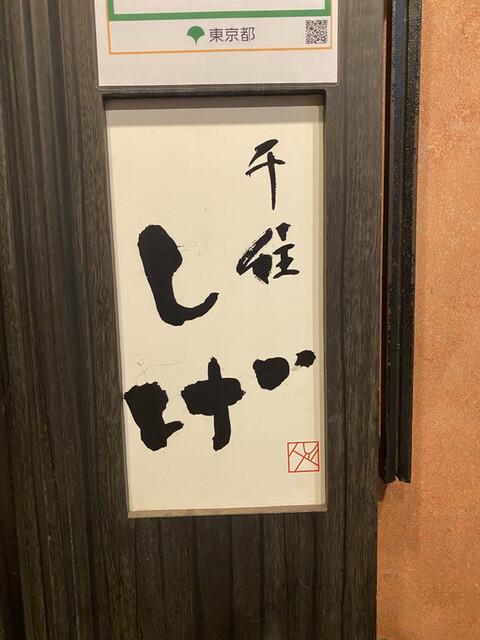 東京都
千住
しげ